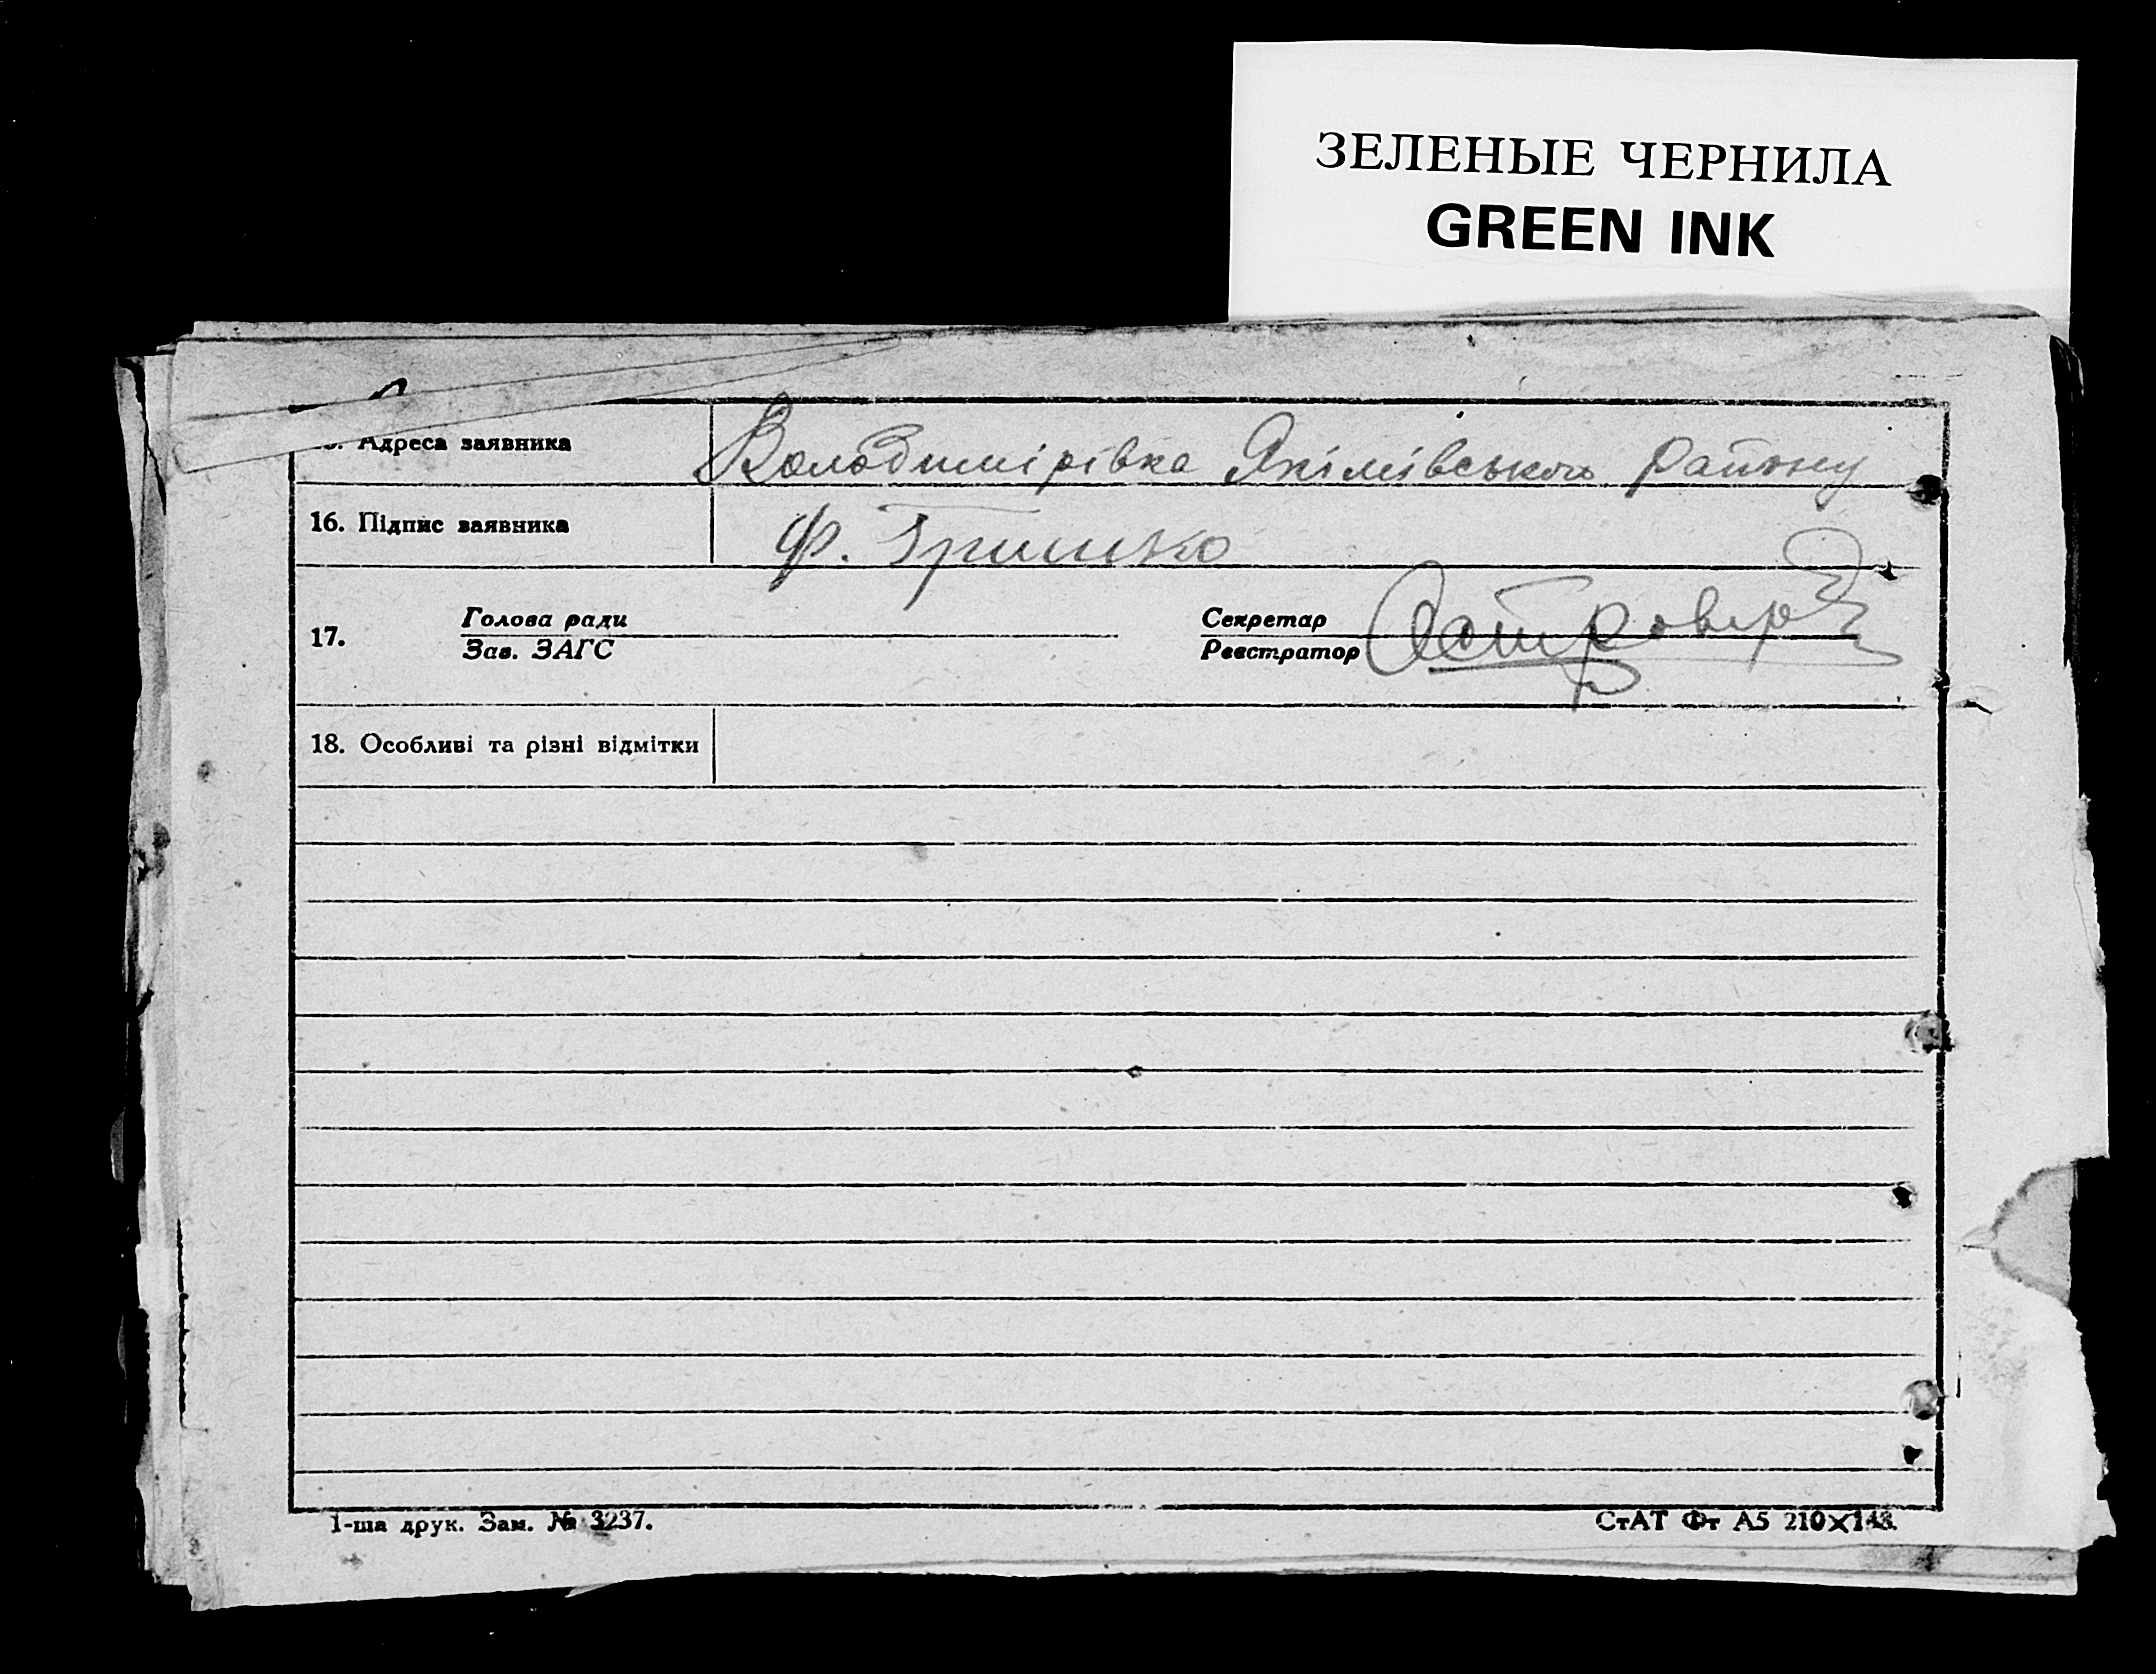 ЗЕЛЕНЫЕ ЧЕРНИЛА
GREEN INK
Адреса заявника Володимірівка Якімівського району
16. Підпис заявника Ф. Гришко
17. Голова ради Секретар
Зав. ЗАГС Реєстратор
18. Особливі та різні відмітки
1-ша друк. Зам. № 3237.
СтАТ Фт А5 210×148.